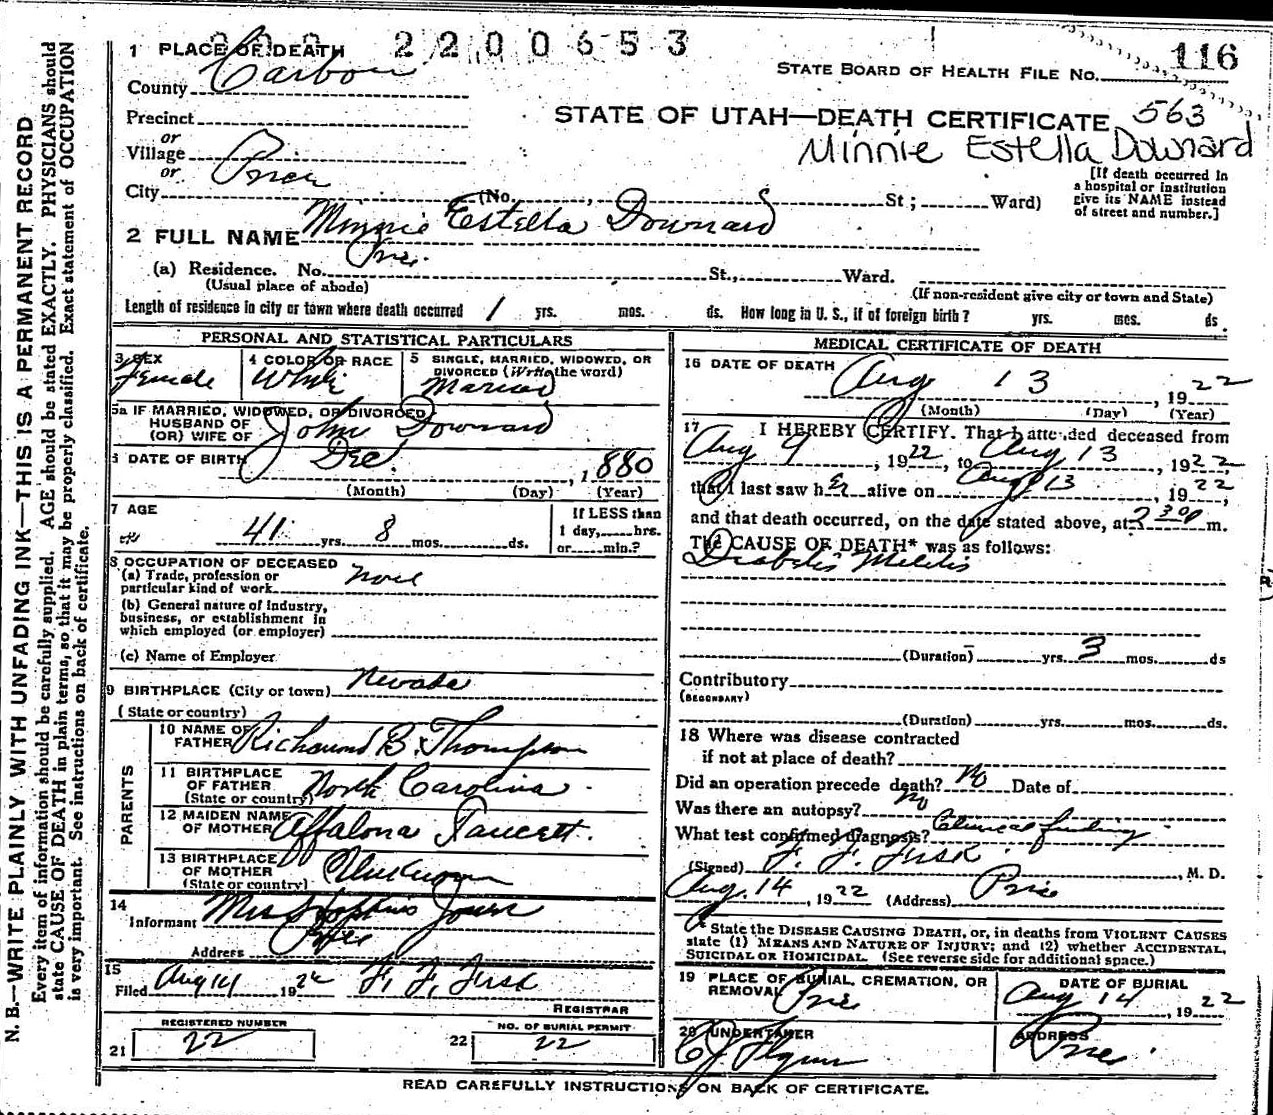 2200653
116
1 PLACE OF DEATH
County Carbon
STATE BOARD OF HEALTH FILE NO.
Precinct
STATE OF UTAH—DEATH CERTIFICATE 563
or
Village
Minnie Estella Downard
or
City Price (No. St; Ward)
[If death occurred in
a hospital or institution
give its NAME instead
of street and number.]
2 FULL NAME Minnie Estella Downard
(a) Residence. No. Price St., Ward.
(Usual place of abode)
(If non-resident give city or town and State)
Length of residence in city or town where death occurred 1 yrs. mos. ds. How long in U. S., if of foreign birth? yrs. mos. ds.
PERSONAL AND STATISTICAL PARTICULARS
3 SEX
Female
4 COLOR OR RACE
White
5 SINGLE, MARRIED, WIDOWED, OR
DIVORCED (Write the word)
Married
5a IF MARRIED, WIDOWED, OR DIVORCED
HUSBAND OF
(OR) WIFE OF John Downard
6 DATE OF BIRTH Dec. , 1880
(Month) (Day) (Year)
7 AGE
41 yrs. 8 mos. ds.
If LESS than
1 day, hrs.
or min.?
8 OCCUPATION OF DECEASED
(a) Trade, profession or
particular kind of work None
(b) General nature of Industry,
business, or establishment in
which employed (or employer)
(c) Name of Employer
9 BIRTHPLACE (City or town) Nevada
(State or country)
PARENTS
10 NAME OF
FATHER Richmond B. Thompson
11 BIRTHPLACE
OF FATHER North Carolina
(State or country)
12 MAIDEN NAME
OF MOTHER Affalona Faucett.
13 BIRTHPLACE
OF MOTHER Unknown
(State or country)
14
Informant Mrs Hopkins Jones
Address Price
15
Filed Aug 14 1922 F. F. Fisk
REGISTRAR
REGISTERED NUMBER
21 22
NO. OF BURIAL PERMIT
22 22
MEDICAL CERTIFICATE OF DEATH
16 DATE OF DEATH
Aug 13 , 1922
(Month) (Day) (Year)
17 I HEREBY CERTIFY. That I attended deceased from
Aug 9 , 1922, to Aug 13 , 1922,
that I last saw her alive on Aug 13 , 1922,
and that death occurred, on the date stated above, at m.
The CAUSE OF DEATH* was as follows:
Diabetis Melitis
(Duration) yrs. 3 mos. ds
Contributory
(SECONDARY)
(Duration) yrs. mos. ds.
18 Where was disease contracted
if not at place of death?
Did an operation precede death? No Date of
Was there an autopsy? No
What test confirmed diagnosis? Clinical finding
(Signed) F. F. Fisk , M. D.
Aug. 14 , 1922 (Address) Price
* State the DISEASE CAUSING DEATH, or, in deaths from VIOLENT CAUSES
state (1) MEANS AND NATURE OF INJURY; and (2) whether ACCIDENTAL,
SUICIDAL OR HOMICIDAL. (See reverse side for additional space.)
19 PLACE OF BURIAL, CREMATION, OR
REMOVAL Price
DATE OF BURIAL
Aug 14 , 1922
20 UNDERTAKER
C J Flynn
ADDRESS
Price
READ CAREFULLY INSTRUCTIONS ON BACK OF CERTIFICATE.
N. B.—WRITE PLAINLY WITH UNFADING INK—THIS IS A PERMANENT RECORD
Every item of information should be carefully supplied. AGE should be stated EXACTLY. PHYSICIANS should
state CAUSE OF DEATH in plain terms, so that it may be properly classified. Exact statement of OCCUPATION
is very important. See instructions on back of certificate.